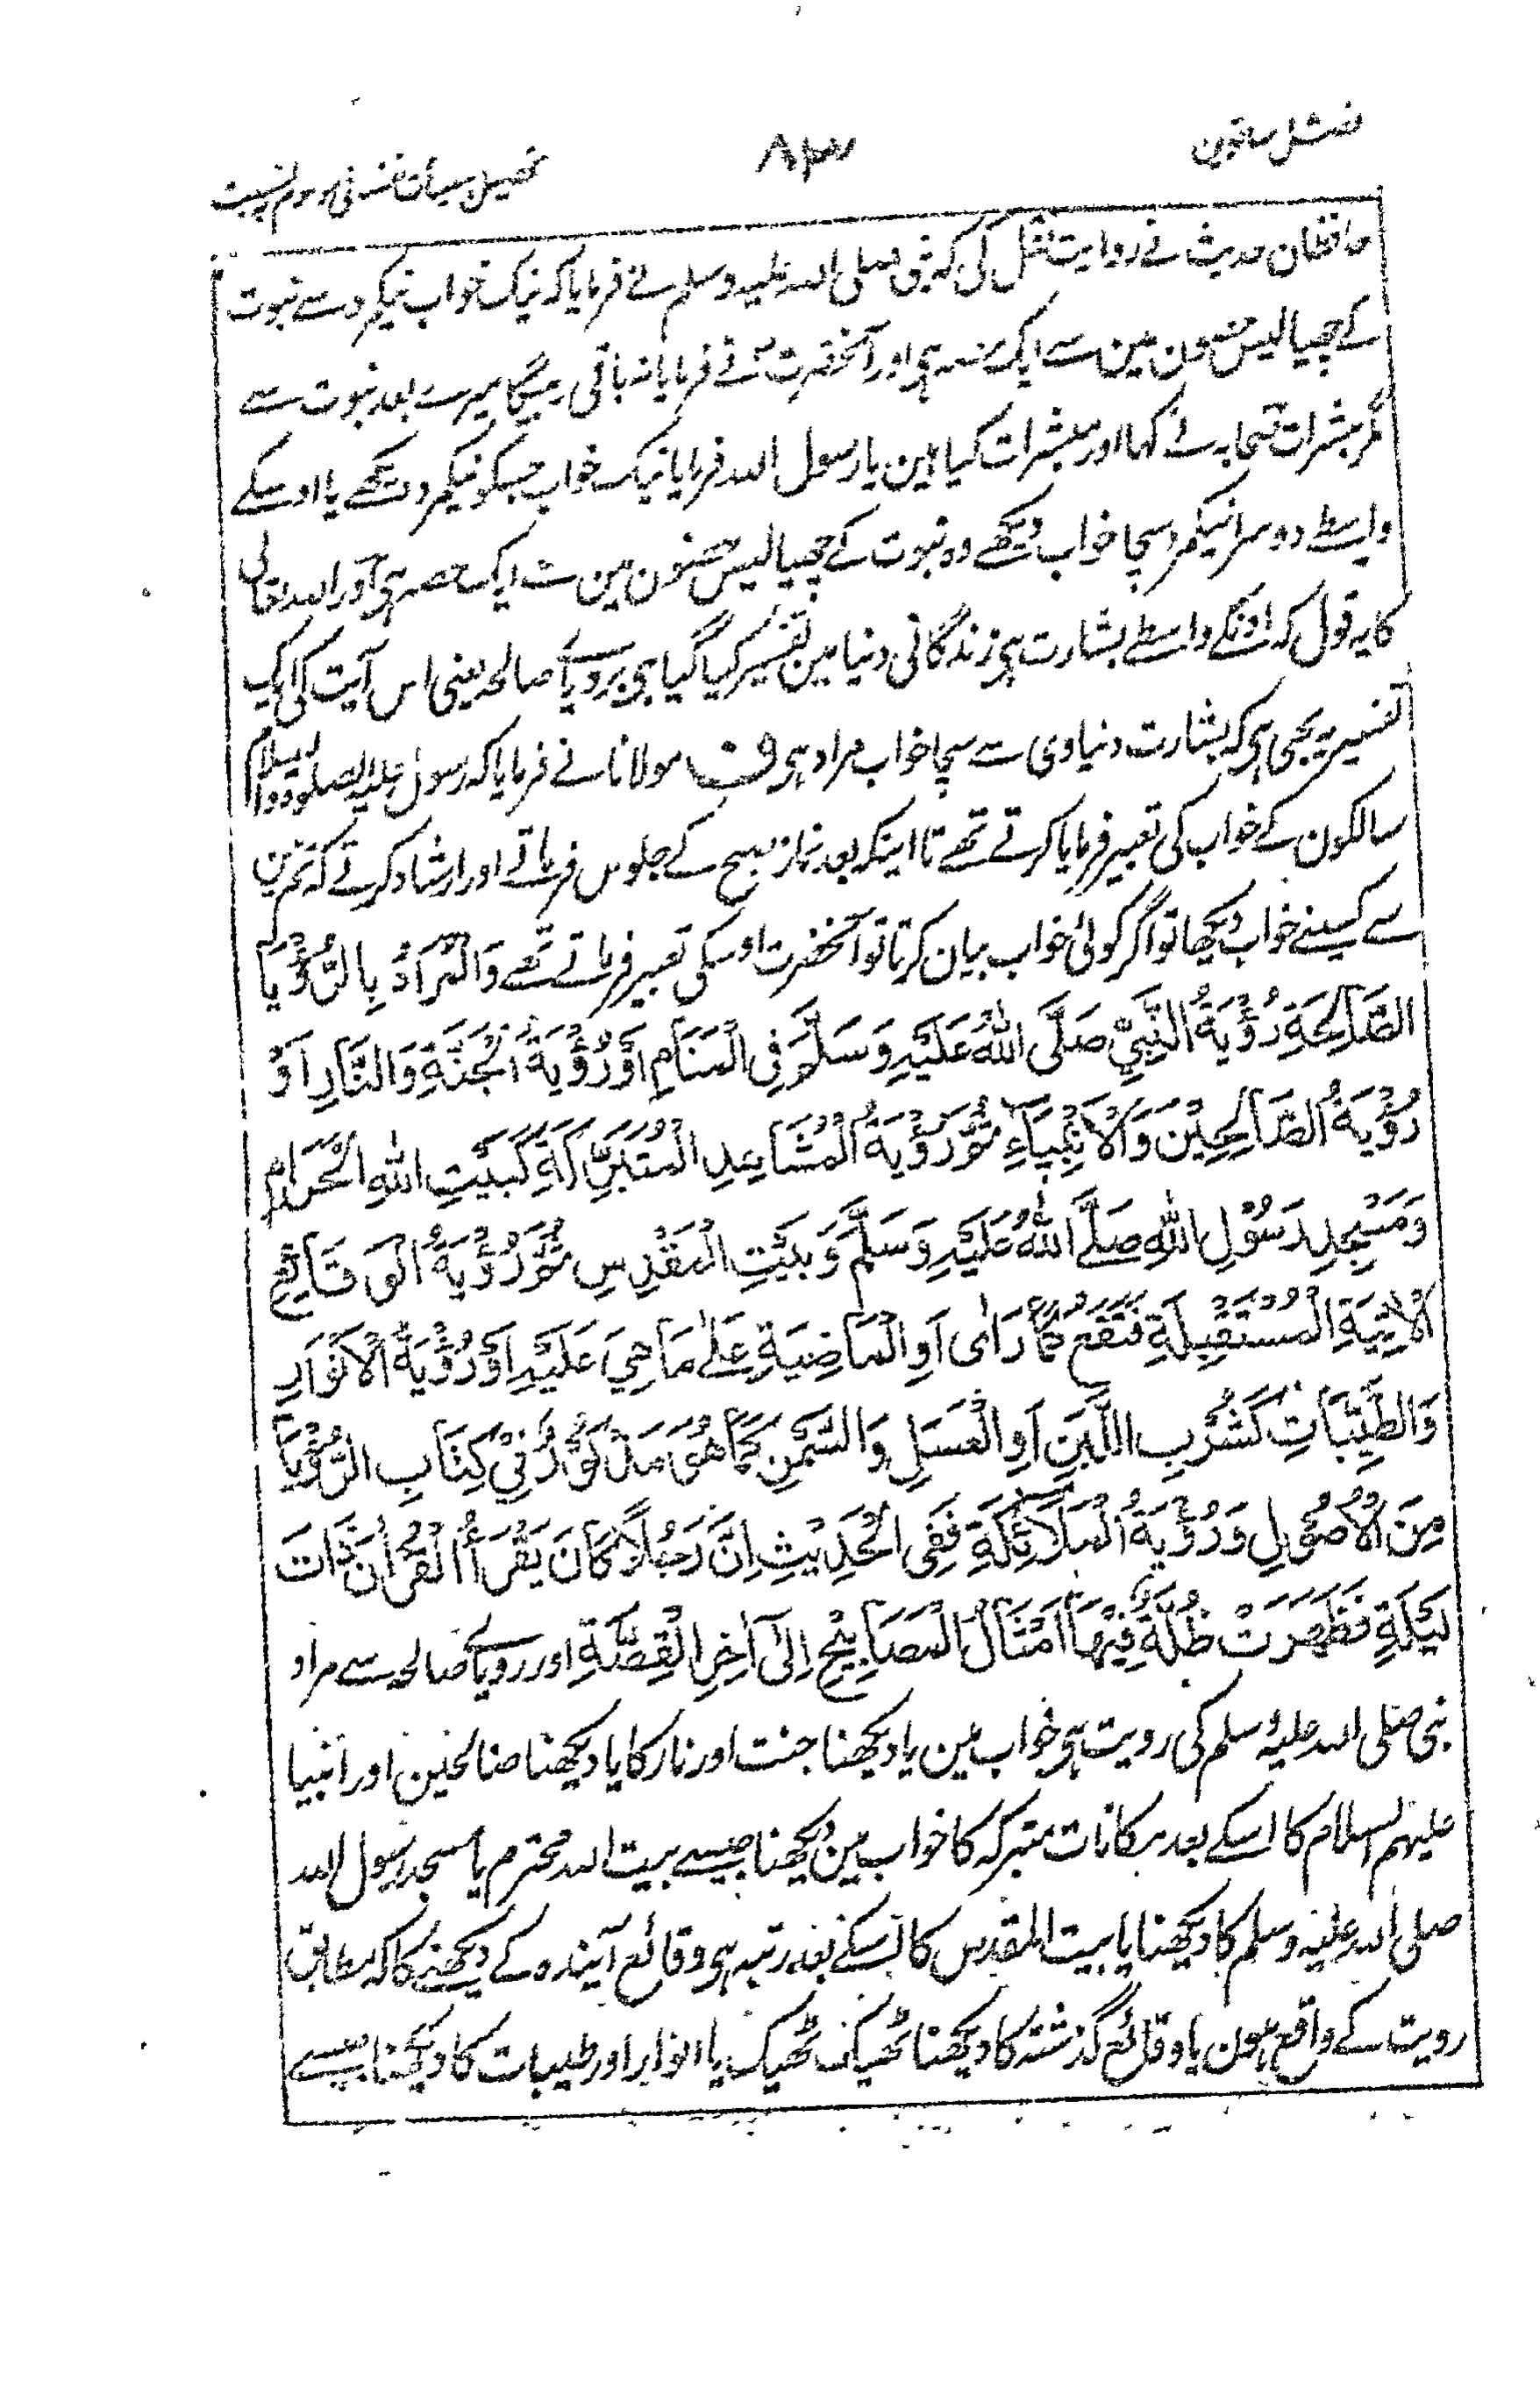 فصل ساتوین
۸۳
حافظان حدیث نے روایت نقل کی کہ نبی صلی اللہ علیہ وسلم نے فرمایا کہ نیک خواب نیکمرد سے نبوت
کے چھیالیس حصون مین سے ایک حصہ ہی اور آنحضرت نے فرمایا نہ باقی رہیگا میرے بعد نبوت سے
مگر مبشرات صحابہ نے کہا اور مبشرات کیا ہین یا رسول اللہ فرمایا نیک خواب جسکو نیکمرد دیکھے یا اوسکے
واسطے دوسرا نیکمرد سچا خواب دیکھے وہ نبوت کے چھیالیس حصون مین سے ایک حصہ ہی اور اللہ تعالی
کا یہ قول کہ اونکے واسطے بشارت ہی زندگانی دنیا مین تفسیر کیا گیا ہی برویاے صالحہ یعنی اس آیت کی ایک
تفسیر یہ بھی ہی کہ بشارت دنیاوی سے سچا خواب مراد ہی ف مولانا نے فرمایا کہ رسول علیہ الصلوۃ والسلام
سالکون کے خواب کی تعبیر فرمایا کرتے تھے تا اینکہ بعد نماز صبح کے جلوس فرماتے اور ارشاد کرتے کہ تم مین
سے کسینے خواب دیکھا تو اگر کوئی خواب بیان کرتا تو آنحضرت اوسکی تعبیر فرماتے تھے وَالْمُرَادُ بِالرُّؤْيَا
الصَّالِحَةِ رُؤْيَةُ النَّبِيِّ صَلَّى اللّٰهُ عَلَيْهِ وَسَلَّمَ فِي الْمَنَامِ أَوْ رُؤْيَةُ الْجَنَّةِ وَالنَّارِ أَوْ
رُؤْيَةُ الصَّالِحِيْنَ وَالْاَنْبِيَاءِ ثُمَّ رُؤْيَةُ الْمُشَاهِدِ الْمُتَبَرِّكَةِ كَبَيْتِ اللّٰهِ الْحَرَامِ
وَمَسْجِدِ رَسُوْلِ اللّٰهِ صَلَّى اللّٰهُ عَلَيْهِ وَسَلَّمَ وَبَيْتِ الْمَقْدِسِ ثُمَّ رُؤْيَةُ الْوَقَايِعِ
الْاٰتِيَةِ الْمُسْتَقْبِلَةِ فَتَقَعُ كَمَا رَاٰى اَوِ الْمَاضِيَةِ عَلٰى مَا هِيَ عَلَيْهِ اَوْ رُؤْيَةُ الْاَنْوَارِ
وَالطَّيِّبَاتِ كَشُرْبِ اللَّبَنِ اَوِ الْعَسَلِ وَالسَّمْنِ كَمَا هُوَ مَذْكُوْرٌ فِيْ كِتَابِ الرُّؤْيَا
مِنَ الْاُصُوْلِ وَرُؤْيَةُ الْمَلَآئِكَةِ فَفِي الْحَدِيْثِ اِنَّ رَجُلًا كَانَ يَقْرَأُ الْقُرْاٰنَ ذَاتَ
لَيْلَةٍ فَظَهَرَتْ ظُلَّةٌ فِيْهَا اَمْثَالُ الْمَصَابِيْحِ اِلٰى اٰخِرِ الْقِصَّةِ اور رویاے صالحہ سے مراد
نبی صلی اللہ علیہ وسلم کی رویت ہی خواب مین یا دیکھنا جنت اور نار کا یا دیکھنا صالحین اور انبیا
علیہم السلام کا اسکے بعد مکانات متبرکہ کا خواب مین دیکھنا جیسے بیت اللہ محترم یا مسجد رسول اللہ
صلی اللہ علیہ وسلم کا دیکھنا یا بیت المقدس کا اسکے بعد رتبہ ہی وقائع آیندہ کے دیکھنے کا کہ مطابق
رویت کے واقع ہون یا وقائع گذشتہ کا دیکھنا ٹھیک ٹھیک یا انوار اور طیبات کا دیکھنا جیسے